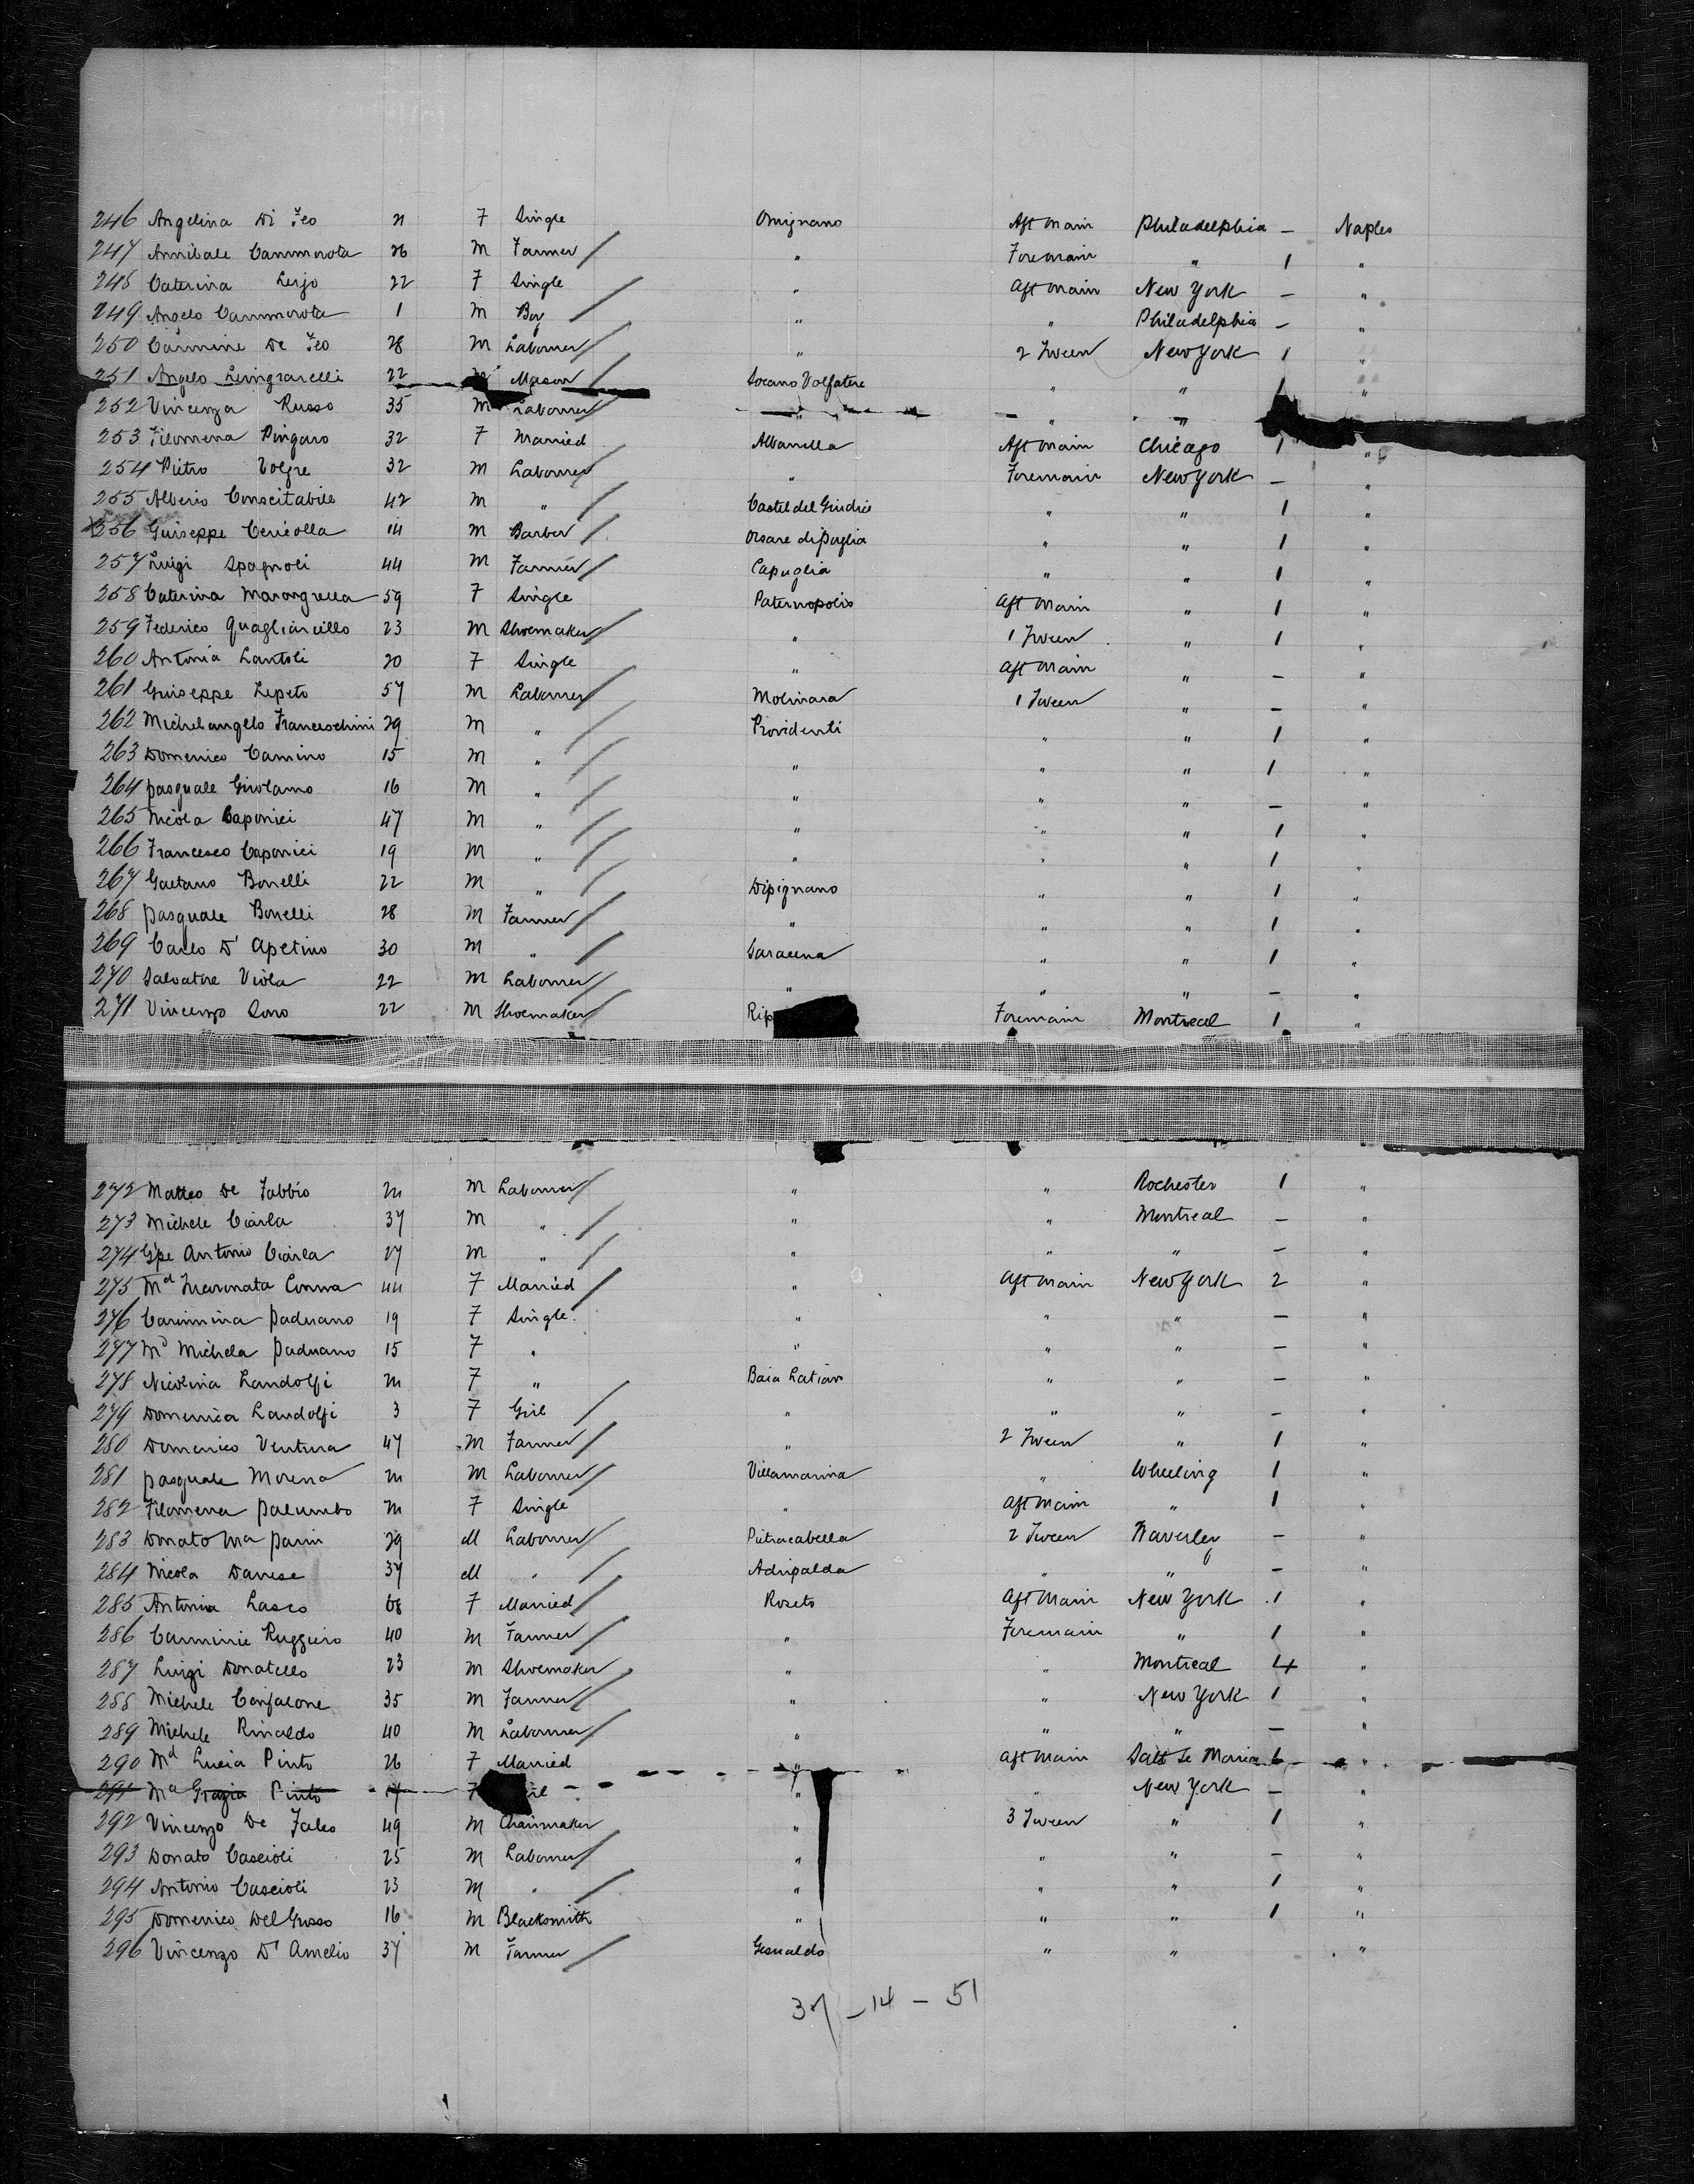 246 Angelina Di Feo 21 F Single Omignano Aft Main Philadelphia — Naples
247 Annibale Cammorota 26 M Farmer " Foremain " 1 "
248 Caterina 22 F Single " Aft Main New York — "
249 Angelo Cammorota 1 M Boy " " Philadelphia — "
250 Carmine De Feo 28 M Labourer " 2 Tween New York 1 "
251 Angelo 22 Mason " " "
252 Vincenza Russo 35 M Labourer " "
253 Filomena Pingaro 32 F Married Albanella Aft Main Chicago 1 "
254 Pietro Volpe 32 M Labourer " Foremain New York — "
255 Alberio Conscitabile 42 M " Castel del Giudice " " 1 "
256 Guiseppe Cericolla 14 M Barber Orsare di Puglia " " 1 "
257 Luigi Spagnoli 44 M Farmer Capuglia " " 1 "
258 Caterina Marangrella 59 F Single Paternopolis Aft Main " 1 "
259 Federico Quagliarcillo 23 M Shoemaker " 1 Tween " 1 "
260 Antonia Lantoli 20 F Single " Aft Main " — "
261 Guiseppe Lepito 57 M Labourer Molinara 1 Tween " — "
262 Michelangelo Franceschini 29 M " Providenti " " 1 "
263 Domenico Camino 15 M " " " " 1 "
264 Pasquale Girolamo 16 M " " " " — "
265 Nicola Caponici 47 M " " " " 1 "
266 Francesco Caponici 19 M " " " " 1 "
267 Gaetano Bonelli 22 M " Dipignano " " 1 "
268 Pasquale Bonelli 28 M Farmer " " " 1 "
269 Carlo D' Apetino 30 M " Saracena " " 1 "
270 Salvatore Viola 22 M Labourer " " " — "
271 Vincenzo Sono 22 M Shoemaker Rip Foremain Montreal 1 "
272 Matteo De Fabbio 21 M Labourer " " Rochester 1 "
273 Michele Ciarla 37 M " " " Montreal — "
274 Gpe Antonio Ciarla 27 M " " " " — "
275 Ma Incoronata 44 F Married " Aft Main New York 2 "
276 Carimina Paduano 19 F Single " " " — "
277 Ma Michela Paduano 15 F " " " " — "
278 Nicolina Landolfi 21 F " Baia Latian " " — "
279 Domenica Landolfi 3 F Girl " " " — "
280 Domenico Ventura 47 M Farmer " 2 Tween " 1 "
281 Pasquale Morena 21 M Labourer Villamarina " Wheeling 1 "
282 Filomena Palumbo 21 F Single " Aft Main " 1 "
283 Donato Ma Parin 29 M Labourer Pietracabella 2 Tween Waverley — "
284 Nicola Danese 37 M " Adripalda " " — "
285 Antonia Lasco 68 F Married Roseto Aft Main New York 1 "
286 Carminie Ruggiero 40 M Farmer " Foremain " 1 "
287 Luigi Donatello 23 M Shoemaker " " Montreal 4 "
288 Michele Confalone 35 M Farmer " " New York 1 "
289 Michele Rinaldo 40 M Labourer " " " — "
290 Ma Lucia Pinto 26 F Married " Aft Main Salt Se Maria 6 "
291 Ma Grazia Pinto F " " New York — "
292 Vincenzo De Falco 49 M Chairmaker " 3 Tween " 1 "
293 Donato Cascioli 25 M Labourer " " " — "
294 Antonio Cascioli 23 M " " " " 1 "
295 Domenico Del Grosso 16 M Blacksmith " " " 1 "
296 Vincenzo D' Amelio 37 M Farmer Gesualdo " " "
37 — 14 — 51